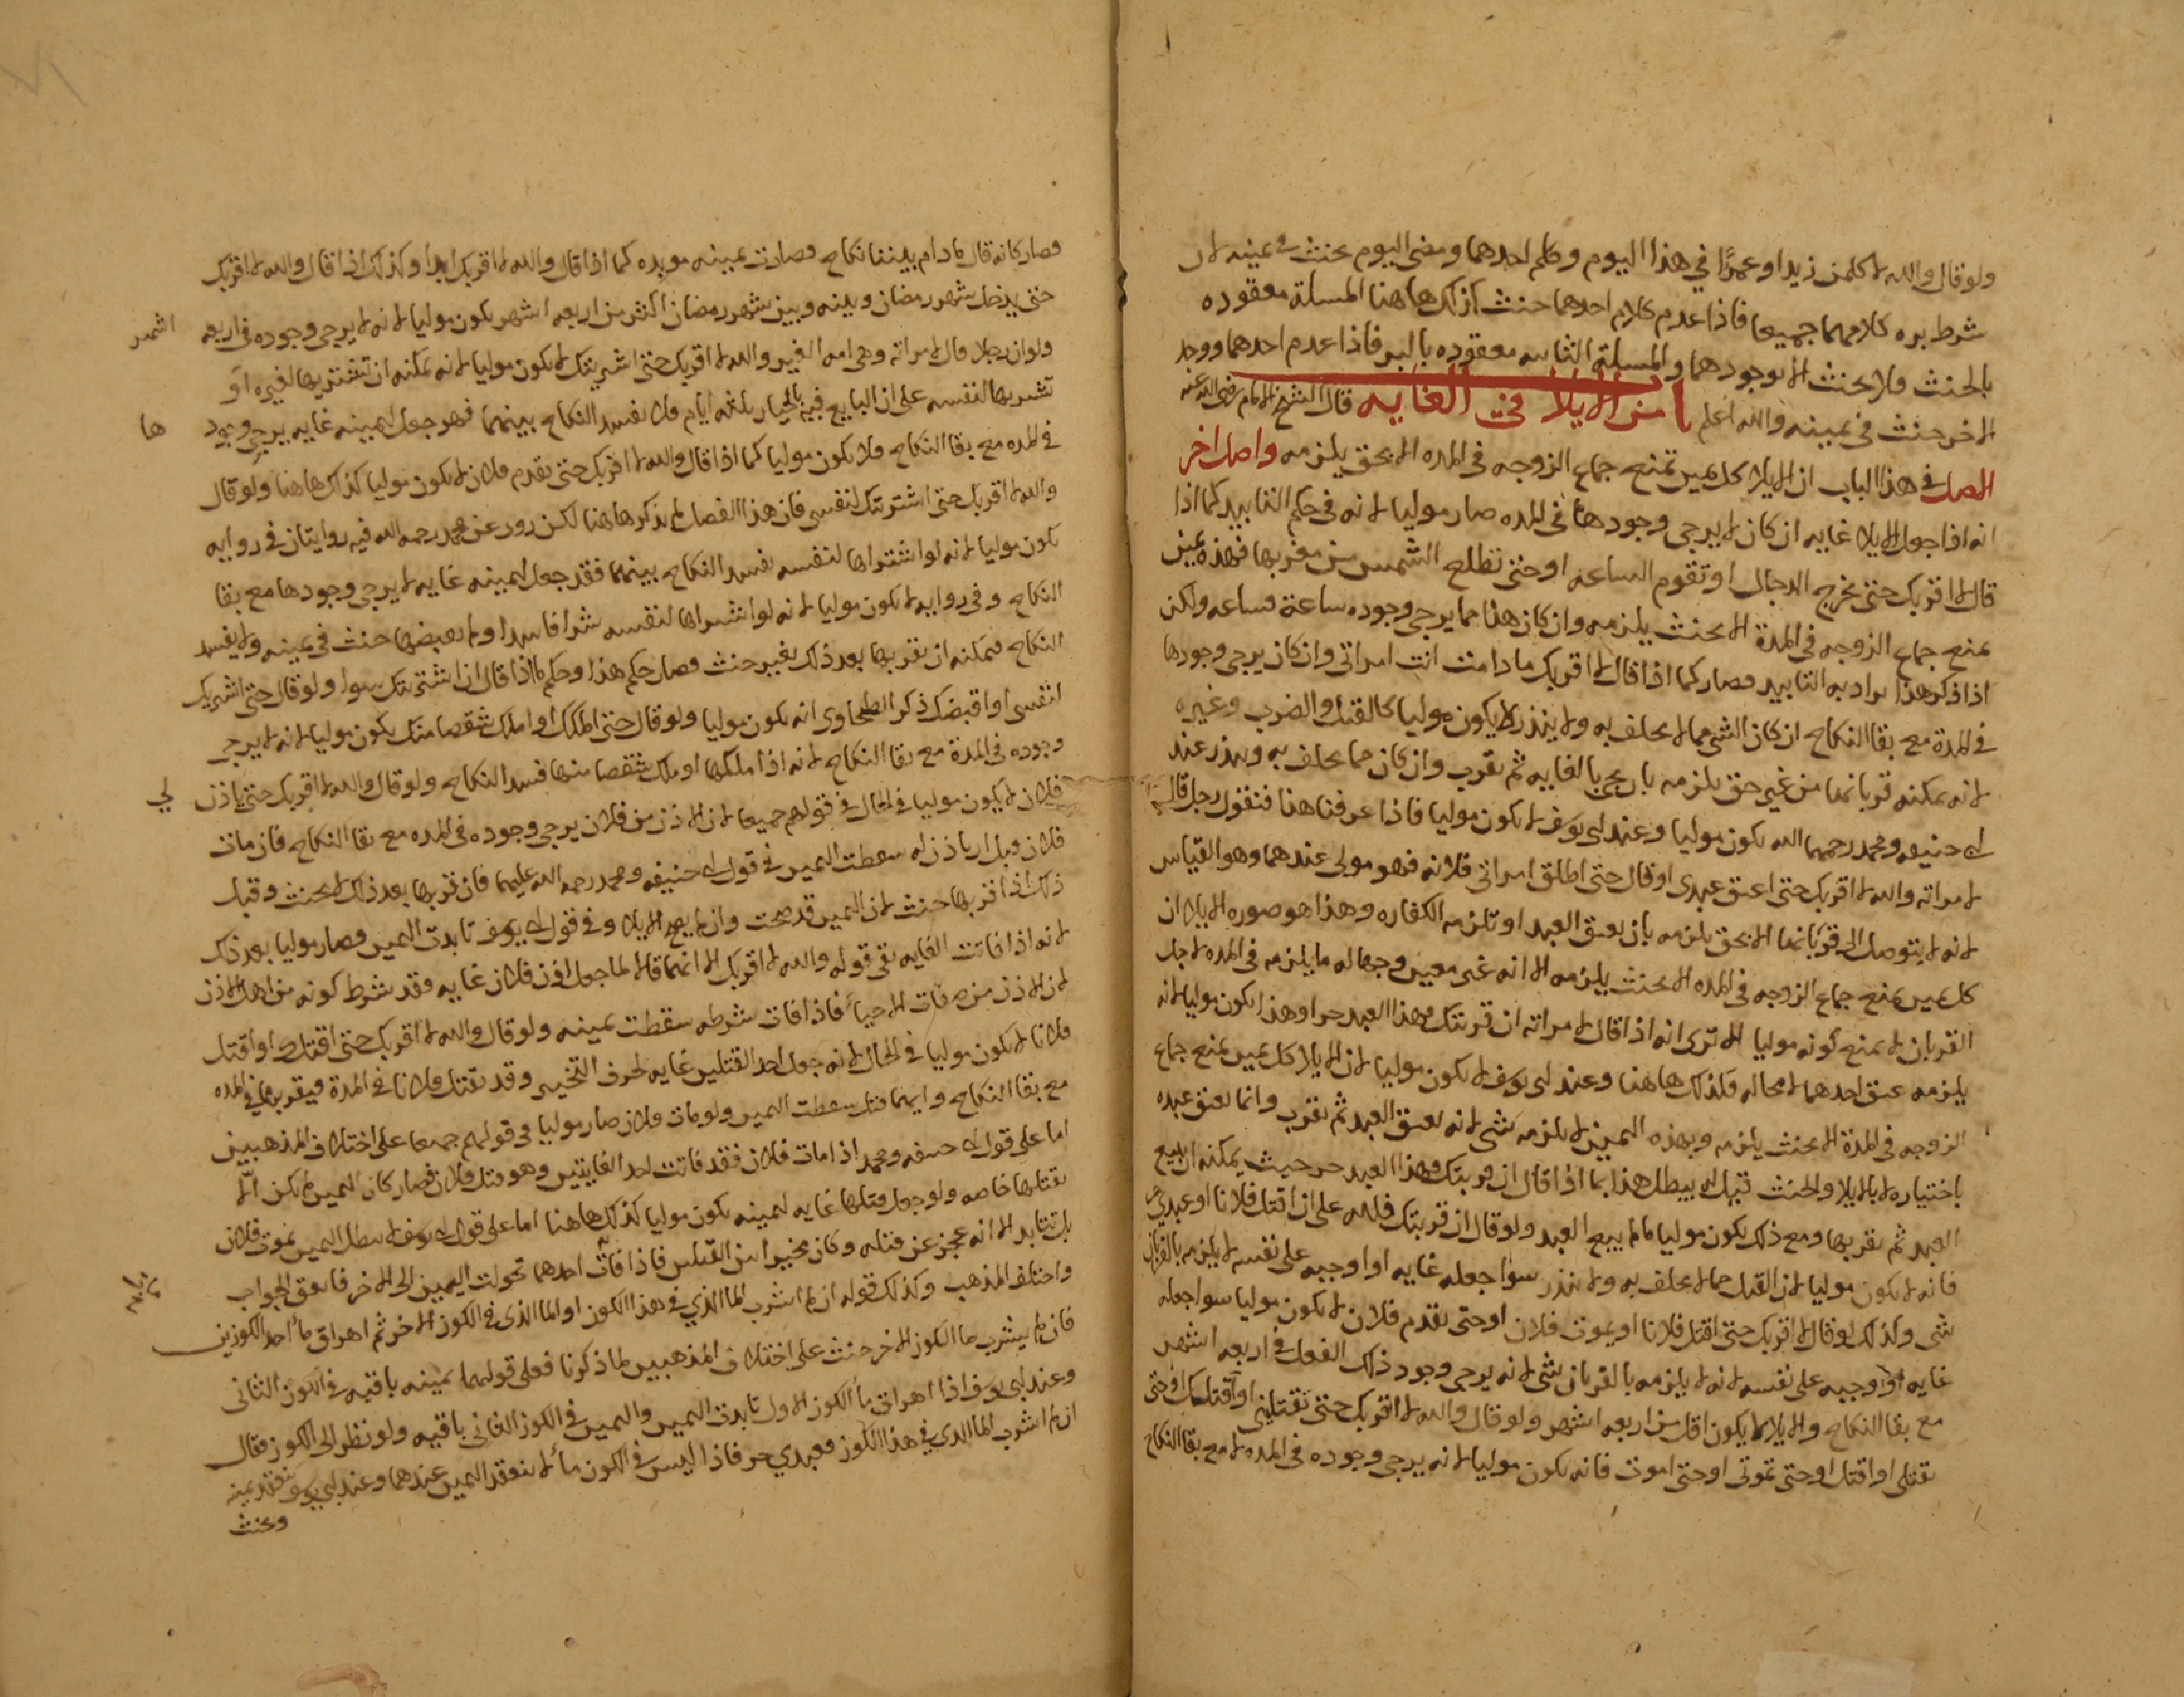 ولو قال والله لاكلمن زيدا او عمرًا في هذا اليوم وكلم احدهما ومضى اليوم يحنث في يمينه لان
شرط بره كلامهما جميعا فاذا عدم كلام احدهما حنث كذلك هاهنا المسلة معقوده
بالحنث فلا يحنث الا بوجودهما والمسلة الثانيه معقوده بالبر فاذا عدم احدهما ووجد
الاخر حنث في يمينه والله اعلم باب من الايلا في الغايه قال الشيخ الامام رضي الله عنه
الاصل في هذا الباب ان الايلا كل يمين تمنع جماع الزوجه في المده الا بحق يلزمه واصل اخر
انه اذا جعل للايلا غايه ان كان لا يرجى وجودها في المده صار موليا لانه في حكم التابيد كما اذا
قال لا اقربك حتى يخرج الدجال او تقوم الساعه او حتى تطلع الشمس من مغربها فهذه يمين
تمنع جماع الزوجه في المدة الا بحنث يلزمه وان كان هذا مما يرجى وجوده ساعة فساعه ولكن
اذا ذكر هذا يراد به التابيد فصار كما اذا قال لا اقربك ما دامت انت امراتي وان كان يرجى وجودها
في المدة مع بقا النكاح ان كان الشي مما لا يحلف به ولا ينذر لا يكون موليا كالقتل والضرب وغيره
لانه يمكنه قربانها من غير حق يلزمه بان يجي بالغايه ثم يقرب وان كان مما يحلف به وينذر عند
ابي حنيفه ومحمد رحمهما الله يكون موليا وعند ابي يوسف لا يكون موليا فاذا عرفنا هذا فنقول رجل قال
لامراته والله لا اقربك حتى اعتق عبدي او قال حتى اطلق امراتي فلانه فهو مولى عندهما وهو القياس
لانه لا يتوصل الى قربانها الا بحق يلزمه بان يعتق العبد او تلزمه الكفاره وهذا هو صوره الايلا ان
كل يمين يمنع جماع الزوجه في المده الا بحنث يلزمه الا انه غير معين وجهاله ما يلزمه في المده لاجل
القربان لا يمنع كونه موليا الا ترى انه اذا قال لامراته ان قربتك فهذا العبد حر او هذا يكون موليا لانه
يلزمه عتق احدهما لا محاله فكذلك هاهنا وعند ابي يوسف لا يكون موليا لان الايلا كل يمين يمنع جماع
الزوجه في المدة الا بحنث يلزمه وبهذه اليمين لا يلزمه شي لانه يعتق العبد ثم يقرب وانما يعتق عبده
باختياره لا بالايلا والحنث قيل له يبطل هذا بما اذا قال ان قربتك فهذا العبد حر حيث يمكنه ان يبيع
العبد ثم يقربها ومع ذلك يكون موليا ما لم يبع العبد ولو قال ان قربتك فلله علي ان اقتل فلانا او عبدي
فانه لا يكون موليا لان القتل مما لا يحلف به ولا ينذر سوا جعله غايه او اوجبه على نفسه لا يلزمه بالقربان
شي وكذلك لو قال لا اقربك حتى اقتل فلانا او يموت فلان او حتى يقدم فلان لا يكون موليا سوا جعله
غايه او اوجبه على نفسه لانه لا يلزمه بالقربان شي لانه يرجى وجود ذلك الفعل في اربعه اشهر
مع بقا النكاح والايلا لا يكون اقل من اربعه اشهر ولو قال والله لا اقربك حتى تقتليني او اقتلك او حتى
تقتلي او اقتل او حتى تموتي او حتى اموت فانه يكون موليا لانه يرجى وجوده في المده لا مع بقا النكاح
فصار كانه قال ما دام بيننا نكاح فصارت يمينه موبده كما اذا قال والله لا اقربك ابدا وكذلك اذا قال والله لا اقربك
حتى يدخل شهر رمضان وبينه وبين شهر رمضان اكثر من اربعه اشهر يكون موليا لانه لا يرجى وجوده في اربعه اشهر
ولو ان رجلا قال لامراته وهي امه الغير والله لا اقربك حتى اشتريتك لا يكون موليا لانه يمكنه ان تشتريها لغيره او
تشتريها لنفسه على ان البايع فيه بالخيار ثلثه ايام فلا يفسد النكاح بينهما فهو جعل ليمينه غايه يرجى وجودها
في المده مع بقا النكاح فلا يكون موليا كما اذا قال والله لا اقربك حتى يقدم فلان لا يكون موليا كذلك هاهنا ولو قال
والله لا اقربك حتى اشتريتك لنفسي فان هذا الفصل لم يذكر هاهنا لكن روى عن محمد رحمه الله فيه روايتان في روايه
يكون موليا لانه لو اشتراها لنفسه يفسد النكاح بينهما فقد جعل ليمينه غايه لا يرجى وجودها مع بقا
النكاح وفي روايه لا يكون موليا لانه لو اشتراها لنفسه شرا فاسدا ولم يقبضها حنث في يمينه ولا يفسد
النكاح فيمكنه ان يقربها بعد ذلك بغير حنث فصار حكم هذا وحكم ما اذا قال ان اشتريتك سوا ولو قال حتى اشتريك
لنفسي او اقبضك ذكر الطحاوي انه يكون موليا ولو قال حتى املكك او املك شقصا منك يكون موليا لانه لا يرجى
وجوده في المدة مع بقا النكاح لانه اذا ملكها او ملك شقصا منها فسد النكاح ولو قال والله لا اقربك حتى ياذن لي
فلان لا يكون موليا في الحال في قولهم جميعا لان الاذن من فلان يرجى وجوده في المده مع بقا النكاح فان مات
فلان قبل ان ياذن له سقطت اليمين في قول ابي حنيفه ومحمد رحمه الله عليهما فان قربها بعد ذلك لا يحنث وقبل
ذلك اذا قربها حنث لان اليمين قد صحت وان لم يصح الايلا وفي قول ابي يوسف تابدت اليمين وصار موليا بعد ذلك
لانه اذا فاتت الغايه بقى قوله والله لا اقربك الا انهما قالا لما جعل اذن فلان غايه فقد شرط كونه من اهل الاذن
لان الاذن من صفات الاحيأ فاذا فات شرطه سقطت يمينه ولو قال والله لا اقربك حتى اقتلك او اقتل
فلانا لا يكون موليا في الحال لانه جعل احد القتلين غايه لحرف التخيير وقد يقتل فلانا في المدة فيقربها في المده
مع بقا النكاح وايهما قتل سقطت اليمين ولو مات فلان صار موليا في قولهم جميعا على اختلاف المذهبين
اما على قول ابي حنيفه ومحمد اذا مات فلان فقد فاتت احد الغايتين وهو قتل فلان فصار كان اليمين لم يكن الا
بقتلها خاصه ولو جعل قتلها غايه ليمينه يكون موليا كذلك هاهنا اما على قول ابي يوسف لا يبطل اليمين بموت فلان
بل تتابد الا انه عجز عن قتله وكان مخيرا بين القتلين فاذا فات احدهما تحولت اليمين الى الاخر فاتفق الجواب
واختلف المذهب وكذلك قوله ان لم اشرب الما الذي في هذا الكوز او الما الذي في الكوز الاخر ثم اهراق مأ احد الكوزين
فان لم يشرب ما الكوز الاخر حنث على اختلاف المذهبين لما ذكرنا فعلى قولهما يمينه باقيه في الكوز الثاني
وعند ابي يوسف اذا اهراق مأ الكوز الاول تابدت اليمين واليمين في الكوز الثاني باقيه ولو نظر الى الكوز فقال
ان لم اشرب الما الذي في هذا الكوز فعبدي حر فاذا ليس في الكوز مأ لا ينعقد اليمين عندهما وعند ابي يوسف ينعقد يمينه
ويحنث